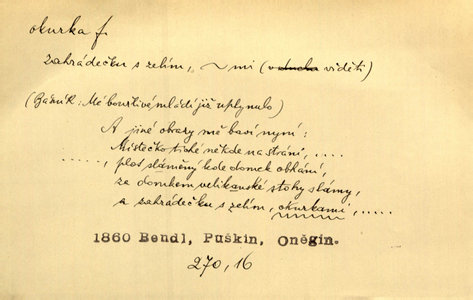 okurka f.
zahrádečku s zelím, ~mi (v duchu viděti)
(Básník: Mé bouřlivé mládí již uplynulo)
A jiné obrazy mě baví nyní:
Městečko tiché někde na stráni, ....
....., plot slaměný kde domek obhání,
za domkem velikánské stohy slámy,
a zahrádečku s zelím, okurkami, .....
1860 Bendl, Puškin, Oněgin.
270, 16